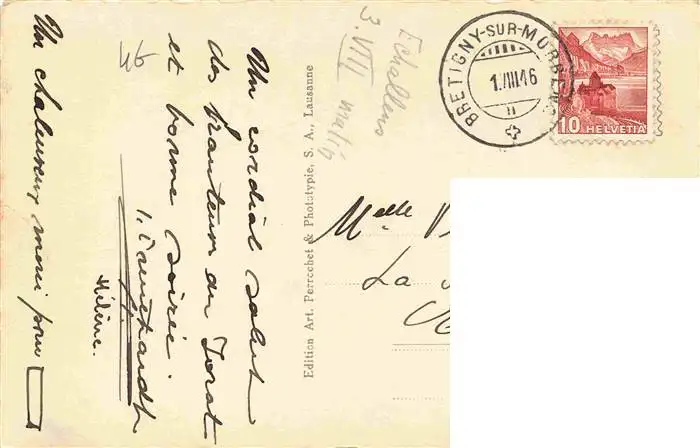 Un cordial salut
des hauteurs du Jorat
et bonne soirée.
Hélène.
Un chaleureux merci pour
46
Echallens
3. VIII matin
Edition Art. Perrochet & Phototypie, S. A., Lausanne
BRETIGNY-SUR-MORRENS
1.VIII.46
10 HELVETIA
Melle
La